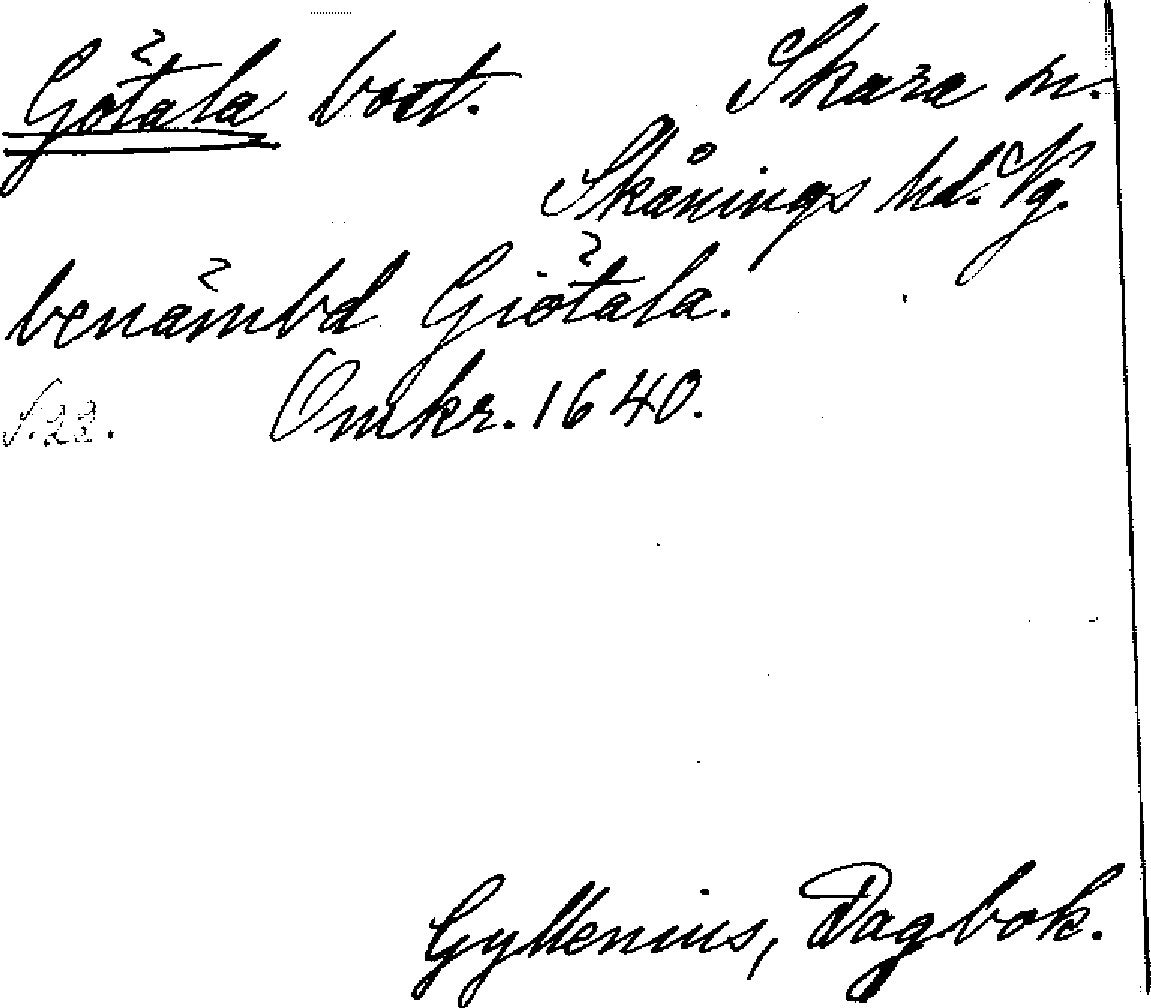 Götala bost. Skara sn.
Skånings hd. Vg.
benämbd Giötala.
S.22. Omkr. 1640.
Gyllenius, Dagbok.